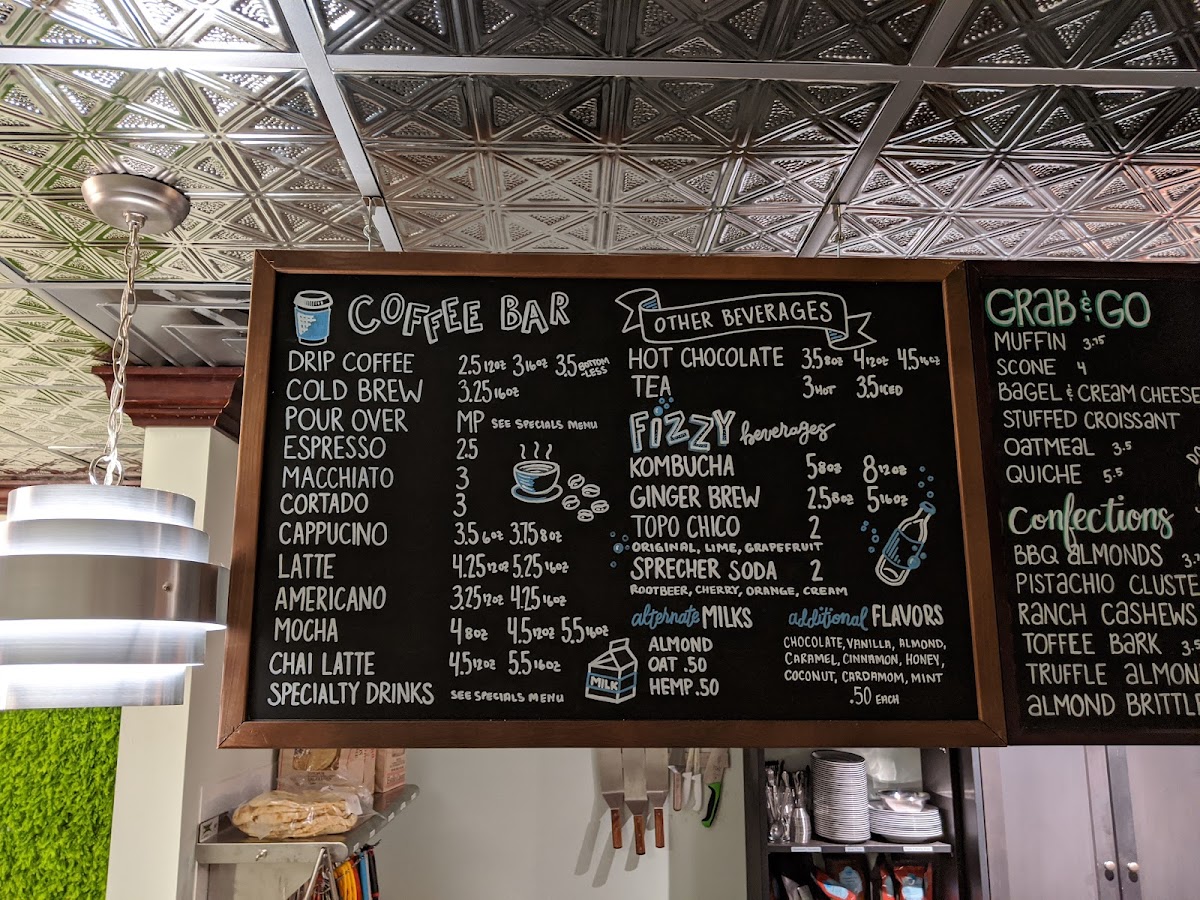 COFFEE BAR
DRIP COFFEE 2.5 12oz 3 16oz 3.5 BOTTOM-LESS
COLD BREW 3.25 16oz
POUR OVER MP SEE SPECIALS MENU
ESPRESSO 2.5
MACCHIATO 3
CORTADO 3
CAPPUCINO 3.5 6oz 3.75 8oz
LATTE 4.25 12oz 5.25 16oz
AMERICANO 3.25 12oz 4.25 16oz
MOCHA 4 8oz 4.5 12oz 5.5 16oz
CHAI LATTE 4.5 12oz 5.5 16oz
SPECIALTY DRINKS SEE SPECIALS MENU
OTHER BEVERAGES
HOT CHOCOLATE 3.5 8oz 4 12oz 4.5 16oz
TEA 3 HOT 3.5 ICED
FIZZY beverages
KOMBUCHA 5 8oz 8 12oz
GINGER BREW 2.5 8oz 5 16oz
TOPO CHICO 2
ORIGINAL, LIME, GRAPEFRUIT
SPRECHER SODA 2
ROOTBEER, CHERRY, ORANGE, CREAM
alternate MILKS
MILK
ALMOND
OAT .50
HEMP .50
additional FLAVORS
CHOCOLATE, VANILLA, ALMOND,
CARAMEL, CINNAMON, HONEY,
COCONUT, CARDAMOM, MINT
.50 EACH
GRAB & GO
MUFFIN 3.75
SCONE 4
BAGEL & CREAM CHEESE
STUFFED CROISSANT
OATMEAL 3.5
QUICHE 5.5
Confections
BBQ ALMONDS
PISTACHIO CLUSTE
RANCH CASHEWS
TOFFEE BARK 3.5
TRUFFLE ALMON
ALMOND BRITTL